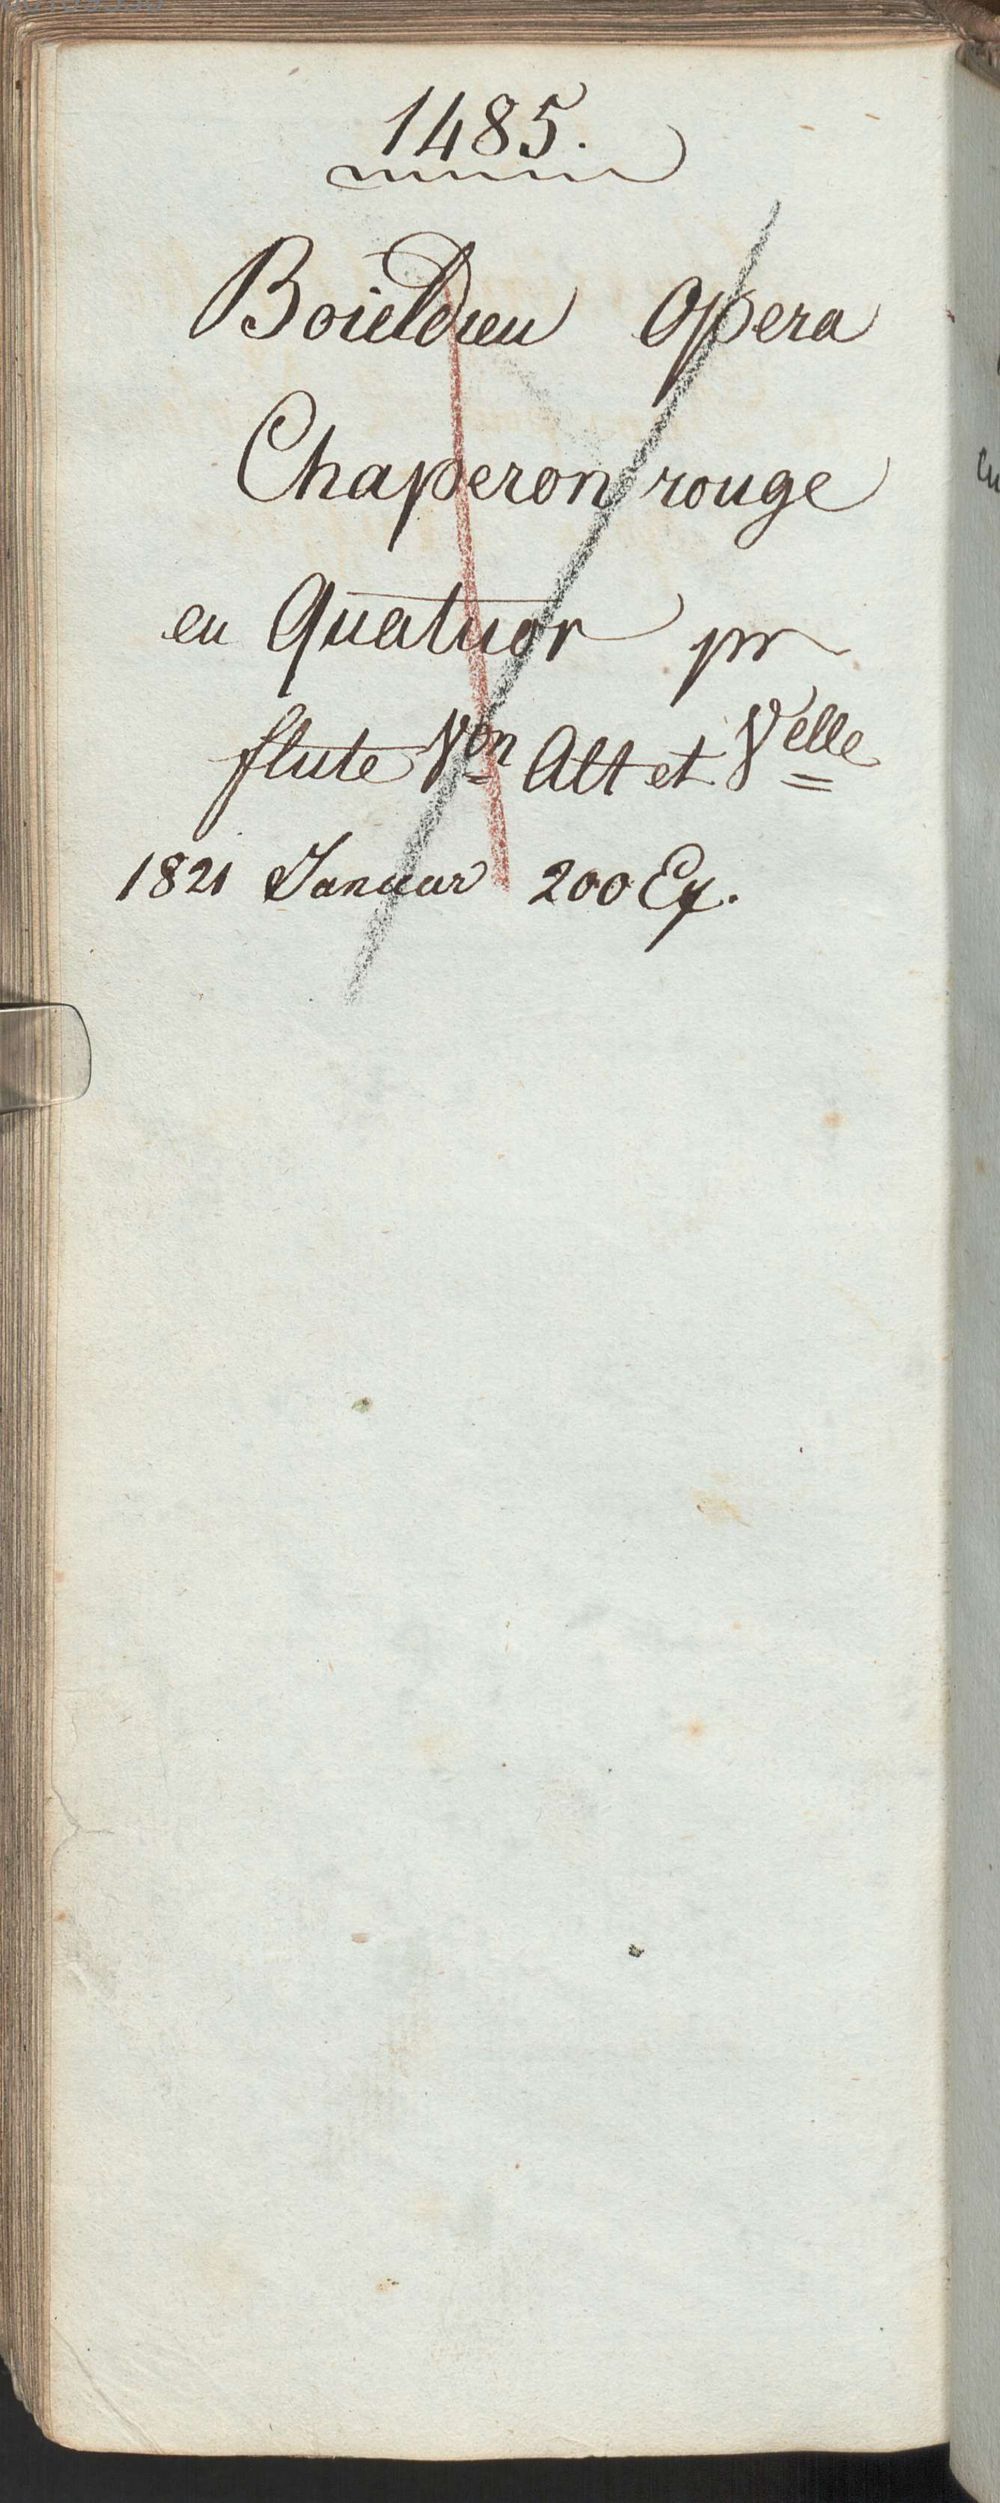 1485.
Boieldieu Opera
Chaperon rouge
en Quatuor pr
flute Von Alt et Velle
1821 Januar 200 Ex.